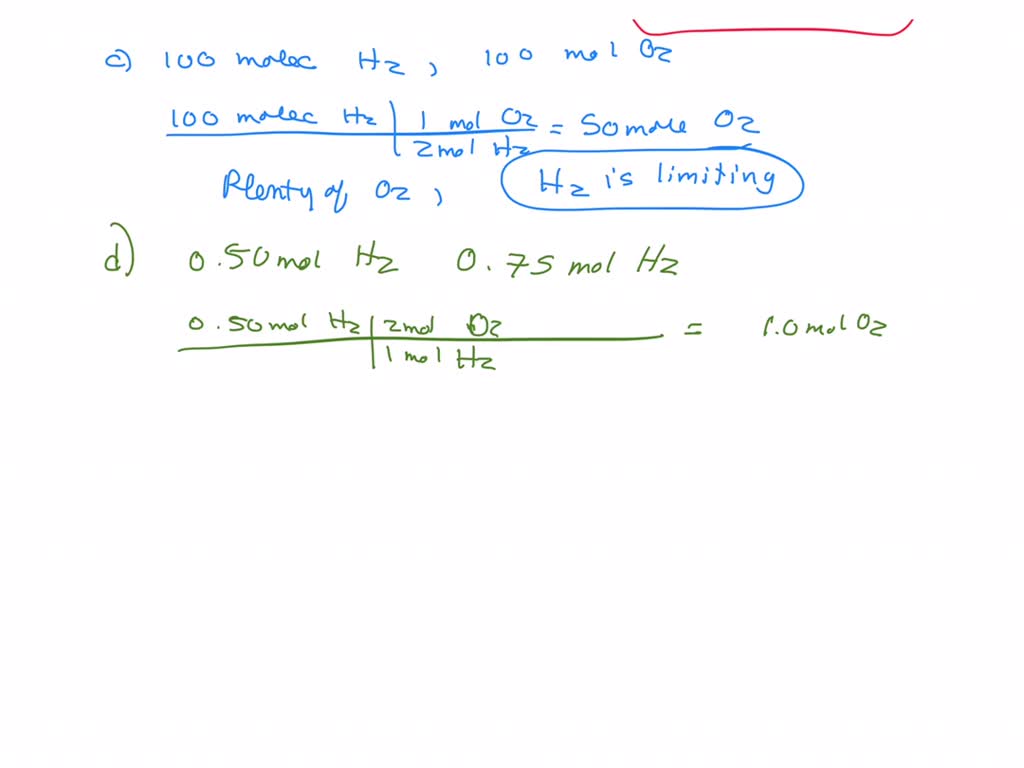 c) 100 molec H2, 100 mol O2
100 molec H2 | 1 mol O2 = 50 mole O2
2 mol H2
Plenty of O2, H2 is limiting
d) 0.50 mol H2 0.75 mol H2
0.50 mol H2 | 2 mol O2 = 1.0 mol O2
1 mol H2